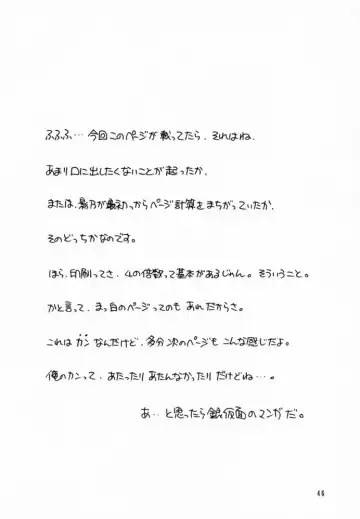 ふふふ…今回このページが載ってたら、それはね、
あまり口に出したくないことが起ったか、
または、影乃が最初っからページ計算をまちがっていたか、
そのどっちかなのです。
ほら、印刷ってさ、4の倍数って基本があるじゃん。そういうこと。
かと言って、まっ白のページってのも あれだからさ。
これは カン なんだけど、多分次のページも こんな感じだよ。
俺のカンって、あたったり あたんなかったり だけどね…。
あ…と思ったら銀仮面のマンガだ。
46